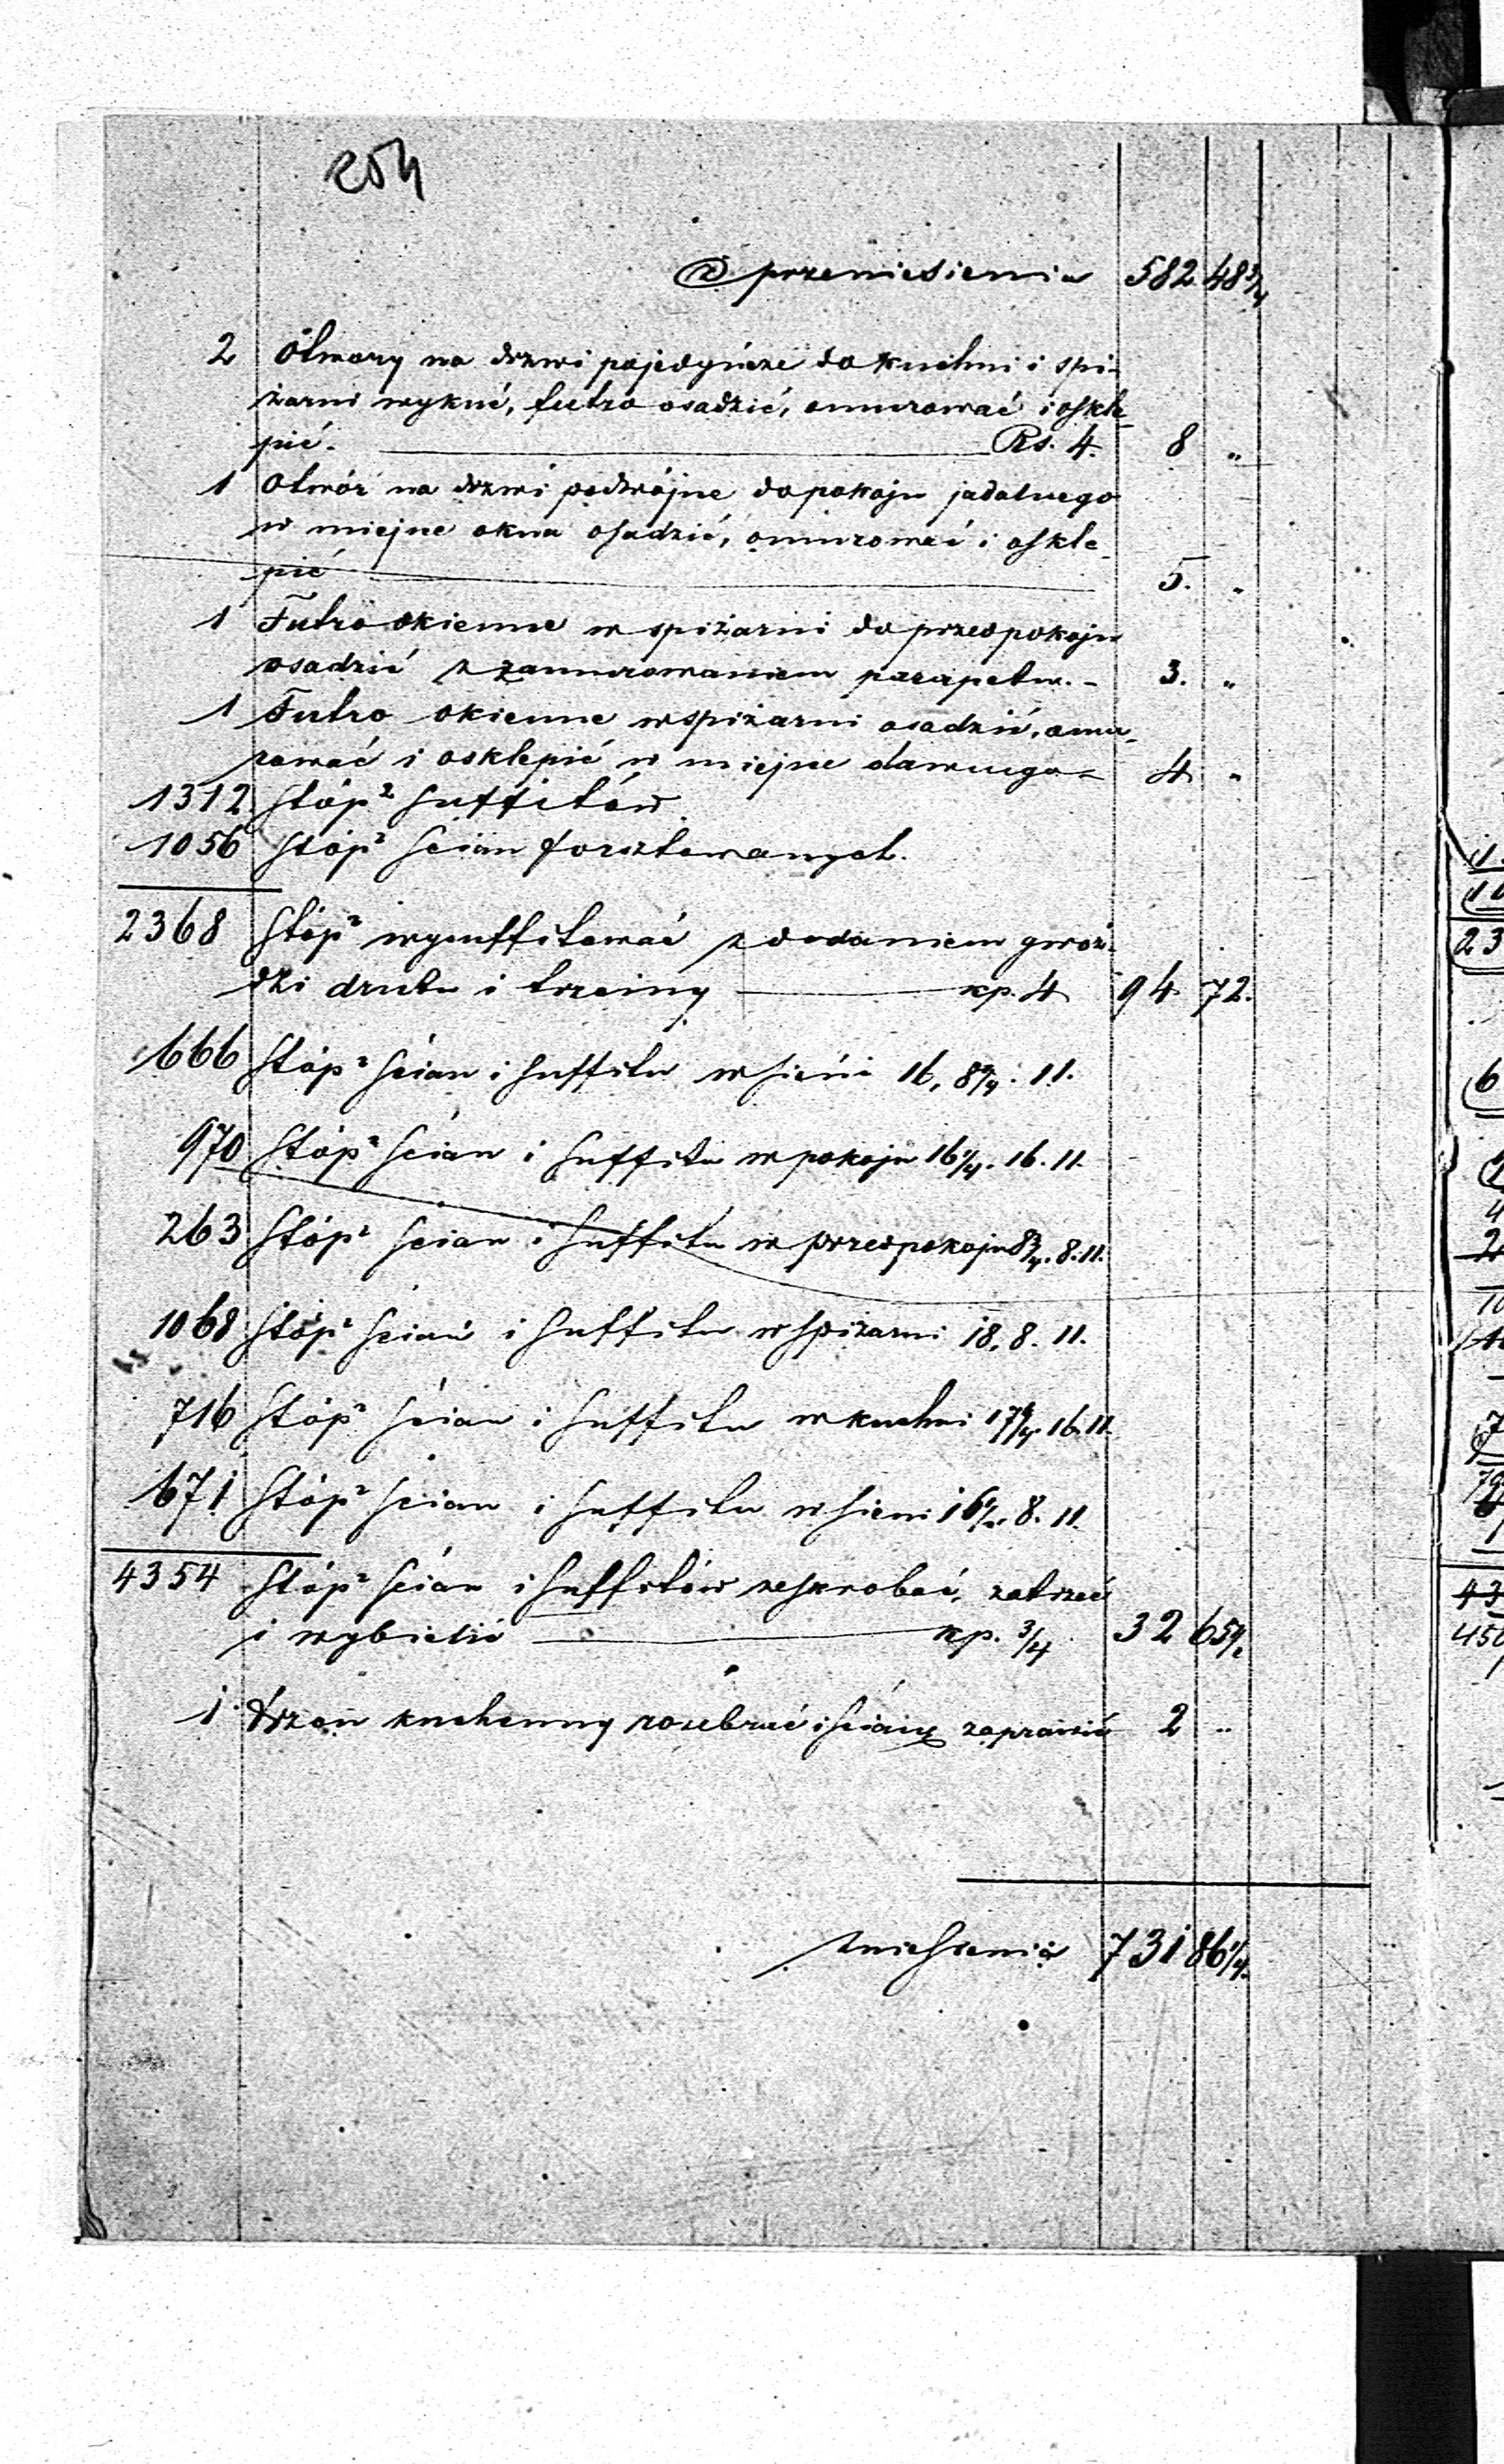 204
Z przeniesienia 582 48 3/4
2 Otwory na drzwi pojedyńcze do kuchni i spi-
żarni wykuć, futra osadzić, omurować i oskle-
pić. Rs. 4. 8 „
1 Otwór na drzwi podwójne do pokoju jadalnego
w miejsce okna osadzić, omurować i oskle-
pić 5. „
1 Futro okienne w spiżarni do przedpokoju
osadzić z zamurowaniem parapetu. - 3. „
1 Futro okienne w spiżarni osadzić, omu-
rować i osklepić w miejsce dawnego - 4 „
1312 Stóp² suffitów
1056 Stóp² ścian forsztowanych.
2368 Stóp² wysuffitować z dodaniem gwoź-
dzi drutu i trzciny kp. 4 94 72.
666 Stóp² ścian i suffitu w sieni 16, 8 11.
970 Stóp² ścian i suffitu w pokoju 16 1/4. 16. 11.
263 Stóp² ścian i suffitu w przedpokoju 8 3/4. 8. 11.
1068 Stóp² ścian i suffitu w spiżarni 18. 8. 11.
716 Stóp² ścian i suffitu w kuchni 17 16. 11.
671 Stóp² ścian i suffitu w sieni 16 8. 11.
4354 Stóp² ścian i suffitów zeskrobać, zatrzeć
i wybielić kp. 3/4 32 65 1/2
1 Trzon kuchenny rozebrać i ścianę zaprawić 2 „
Zniesienia 731 86 1/4.